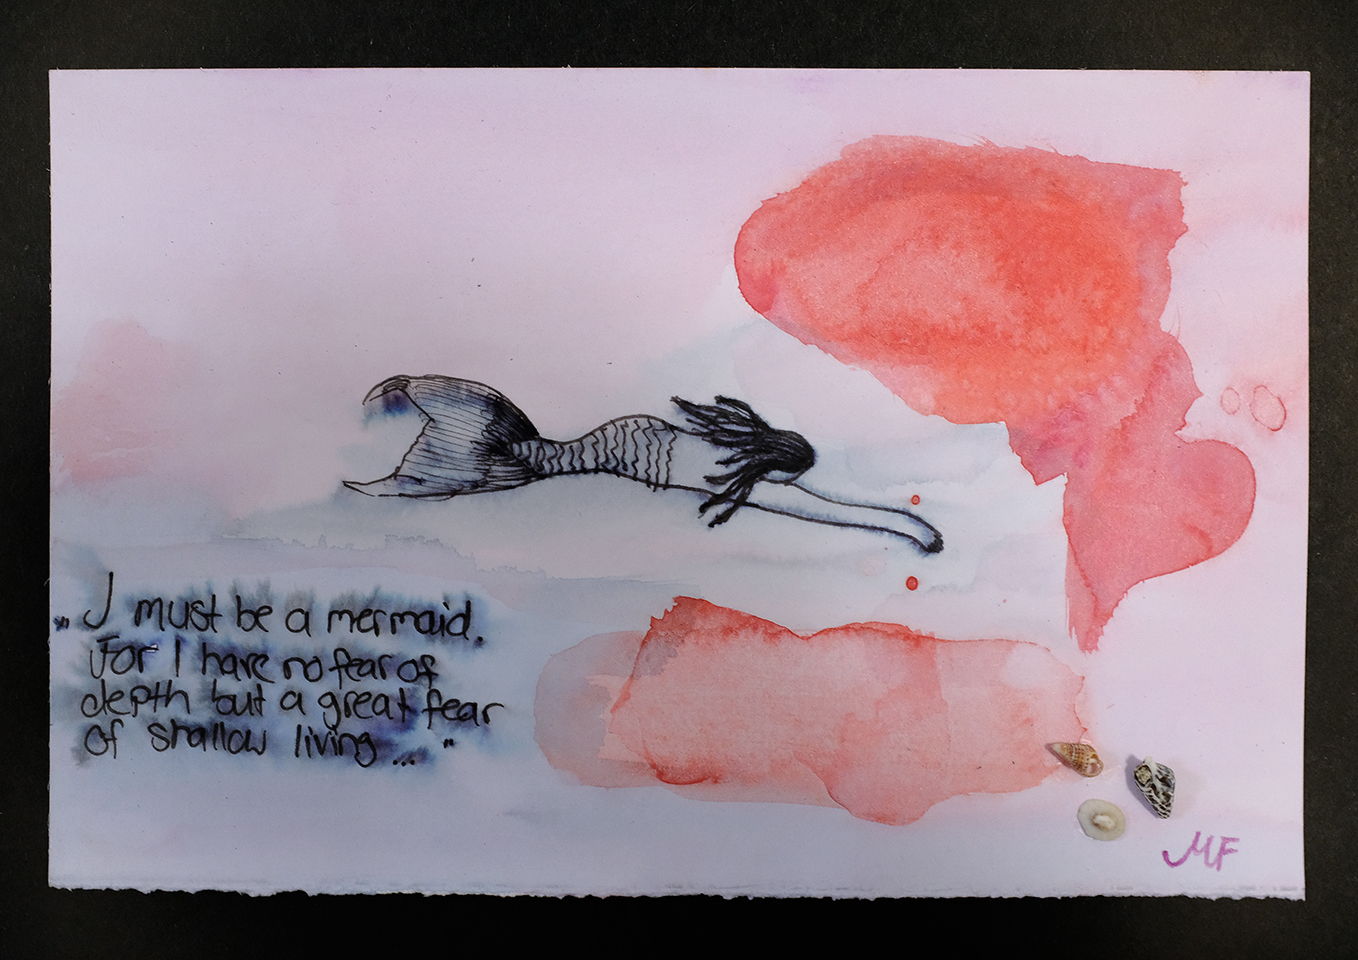 „ I must be a mermaid.
For I have no fear of
depth but a great fear
of shallow living ... "
MF